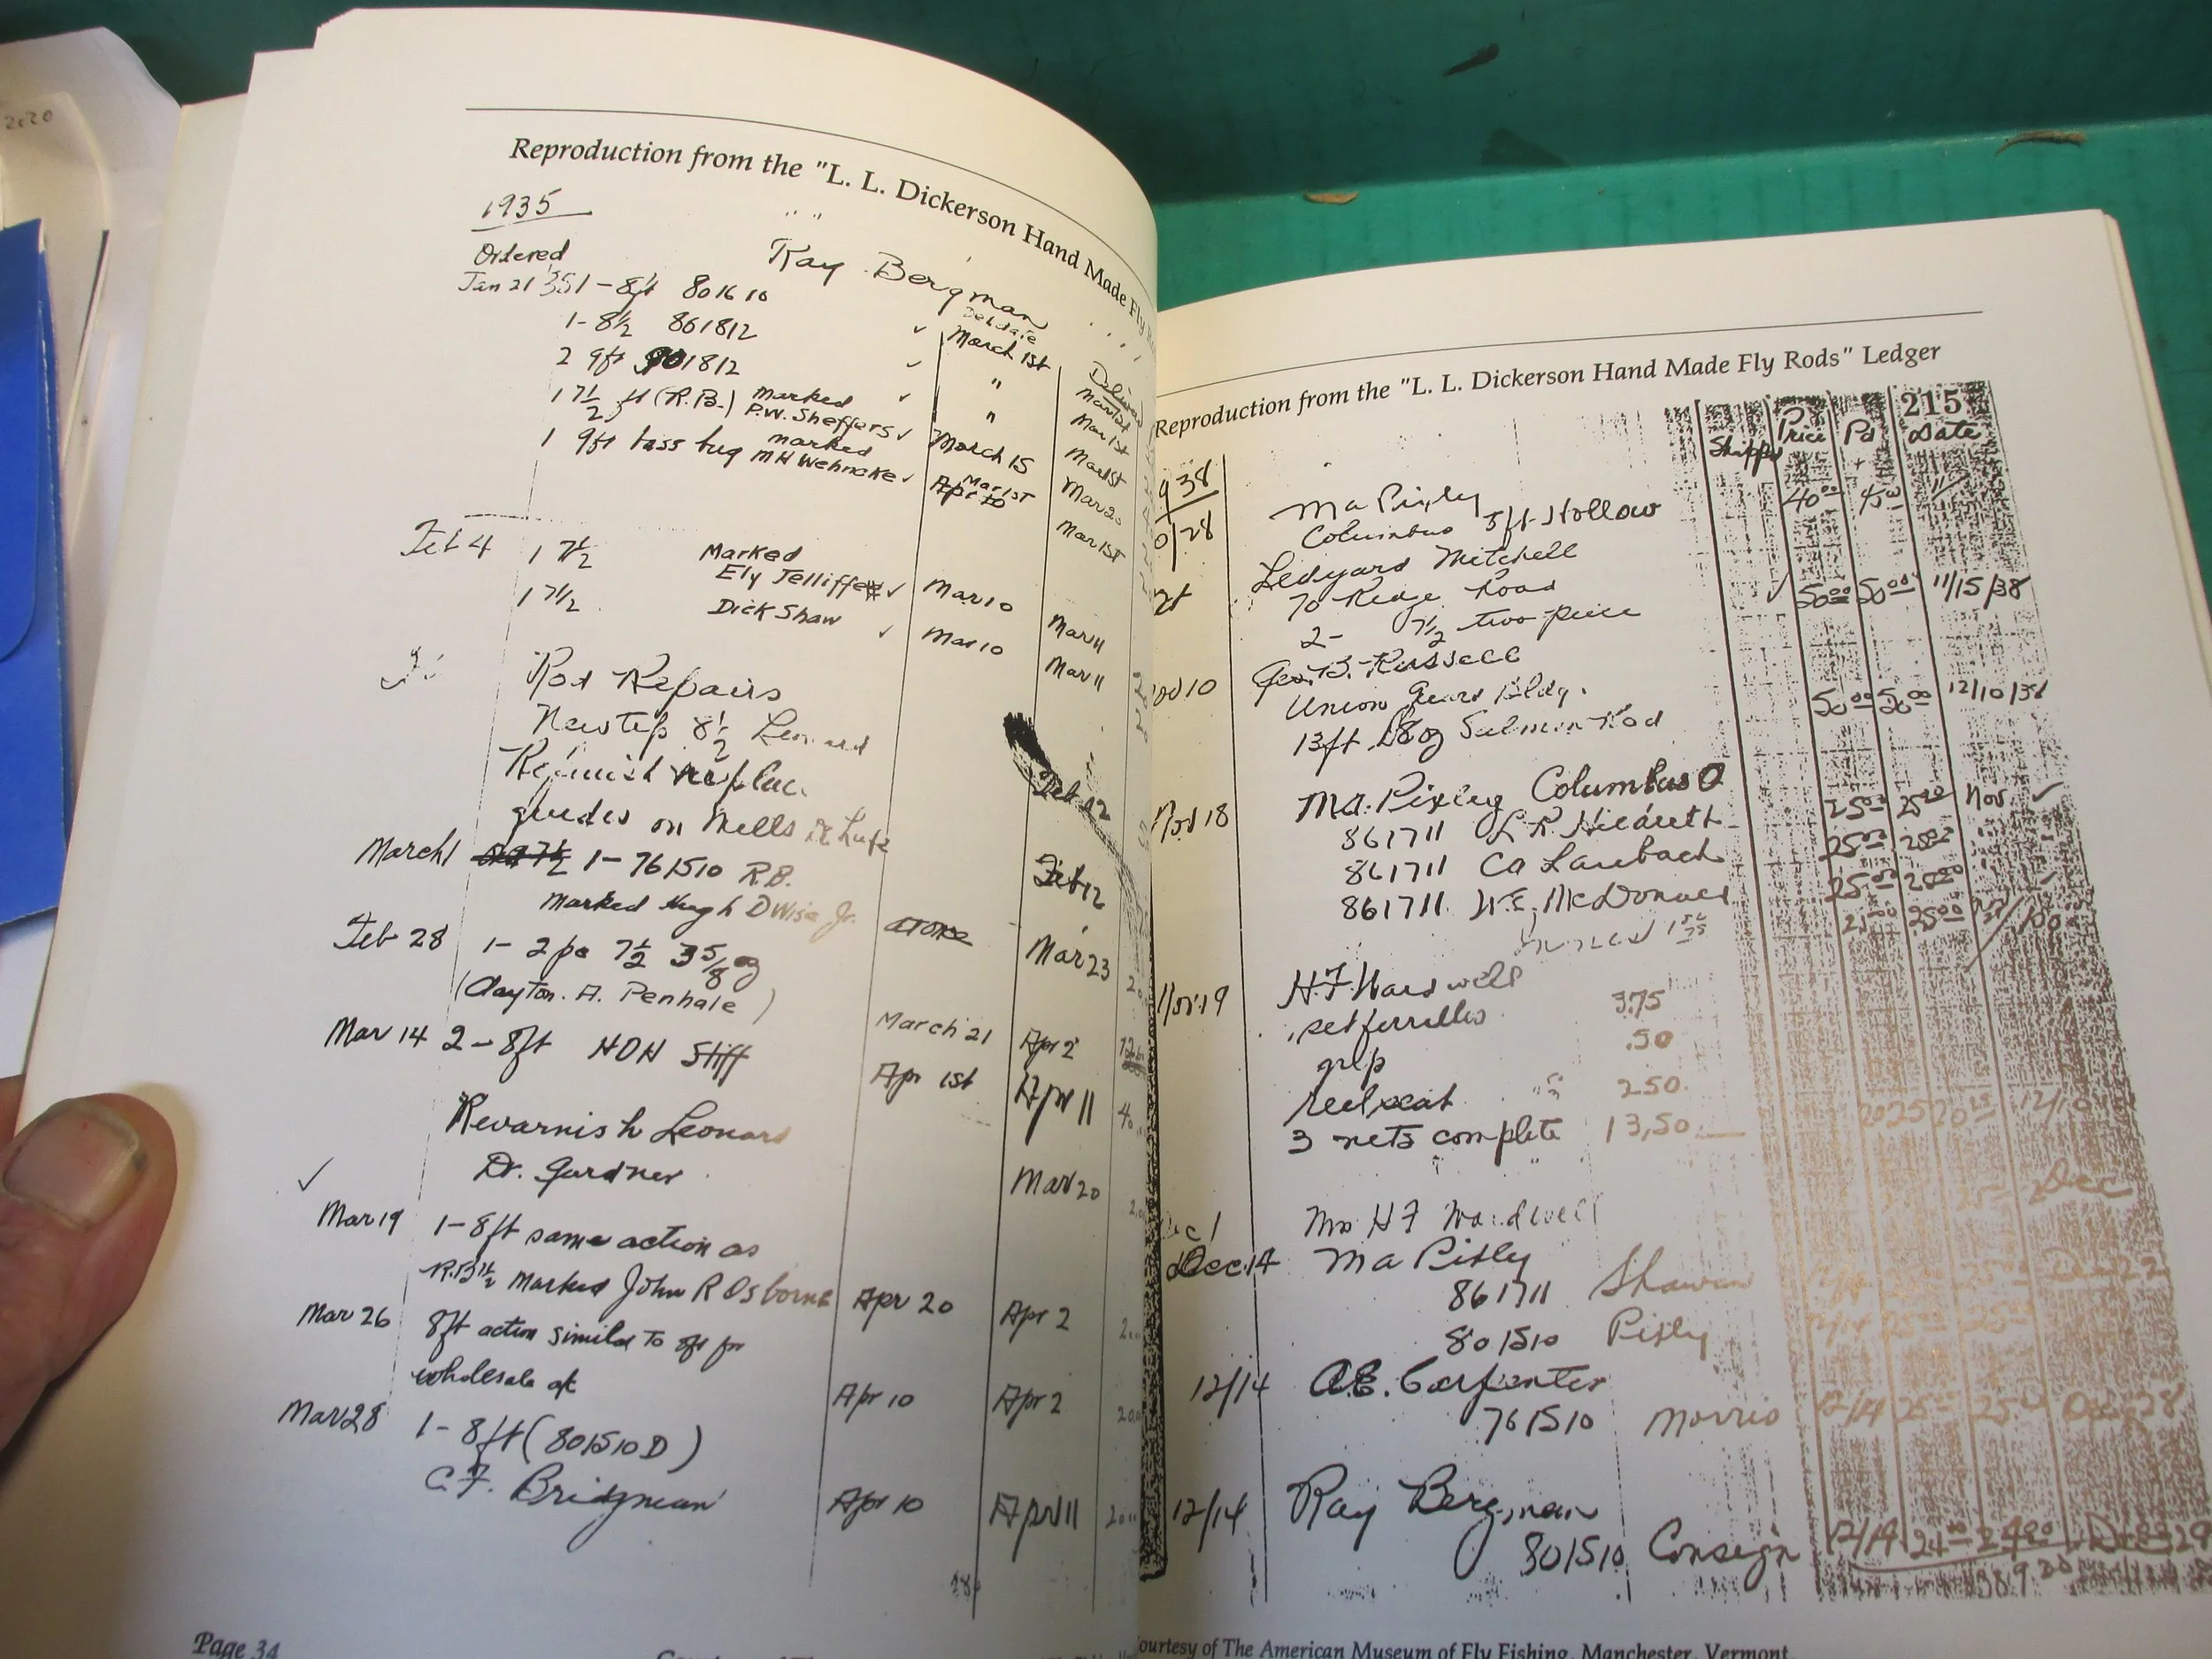 2020
Reproduction from the "L. L. Dickerson Hand Made Fly
1935
Ordered
Ray Bergman
Jan 21 35 1 - 8ft 801610 March 1st
1 - 8½ 861812 ✓ " Mar 1st
2 9ft 901812 ✓ " Mar 1st
1 7½ ft (R.B.) Marked P.W. Sheffers ✓ March 15 Mar 20
1 9ft bass bug marked MH Wehncke ✓ Mar 1st Mar 1st
Feb 4 1 7½ Marked
Ely Jelliffe ✓ Mar 10 Mar 11
1 7½ Dick Shaw ✓ Mar 10 Mar 11
Rod Repairs
New tip 8½ Leonard Feb 12
guides on Mills Feb 12
March 1 1 - 761510 R.B.
Marked Hugh D Wise Jr. at once Mar 23
Feb 28 1 - 2 pc 7½ 3 5/8 oz
(Clayton. A. Penhale) March 21 Apr 2
Mar 14 2 - 8ft HDH Stiff Apr 1st Apr 11
Revarnish Leonard
✓ Dr. Gardner Mar 20
Mar 19 1 - 8ft same action as
R.B 7½ Marked John R Osborne Apr 20 Apr 2
Mar 26 8ft action similar to 8ft for
wholesale at Apr 10 Apr 2
Mar 28 1 - 8ft (801510 D)
C.F. Bridgman Apr 10 Apr 11
Page 34
Reproduction from the "L. L. Dickerson Hand Made Fly Rods" Ledger
215
Shipped Price Pd Date
938
0/28 Ma Pixly 40.00
Columbus 5ft Hollow
Ledyard Mitchell
70 Ridge Road
2 - 7½ two piece ✓ 50.00 50.00 11/15/38
10 Geo. B. Russell
Union Guard Bldg.
13ft 18 oz Salmon Rod 50.00 50.00 12/10/38
Nov 18 Ma. Pixley Columbus O
861711 L R Hildreth 25.00 25.00 Nov ✓
861711 Ca Laubach 25.00 25.00
861711 W.E. McDonald 25.00 25.00
Nov 19 H.F. Wardwell
set ferrules 3.75
grip .50
reel seat 2.50
3 nets complete 13.50
Dec 1 Mr H F Wardwell Dec
Dec. 14 Ma Pixly
861711 Shawan
801510 Pixly
12/14 A.E. Carpenter
761510 Morris 12/14
12/14 Ray Bergman
801510 Consign 12/19 24.00 24.00
ourtesy of The American Museum of Fly Fishing, Manchester, Vermont